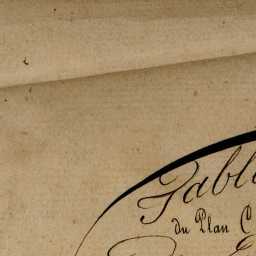 Tabl
du Plan C